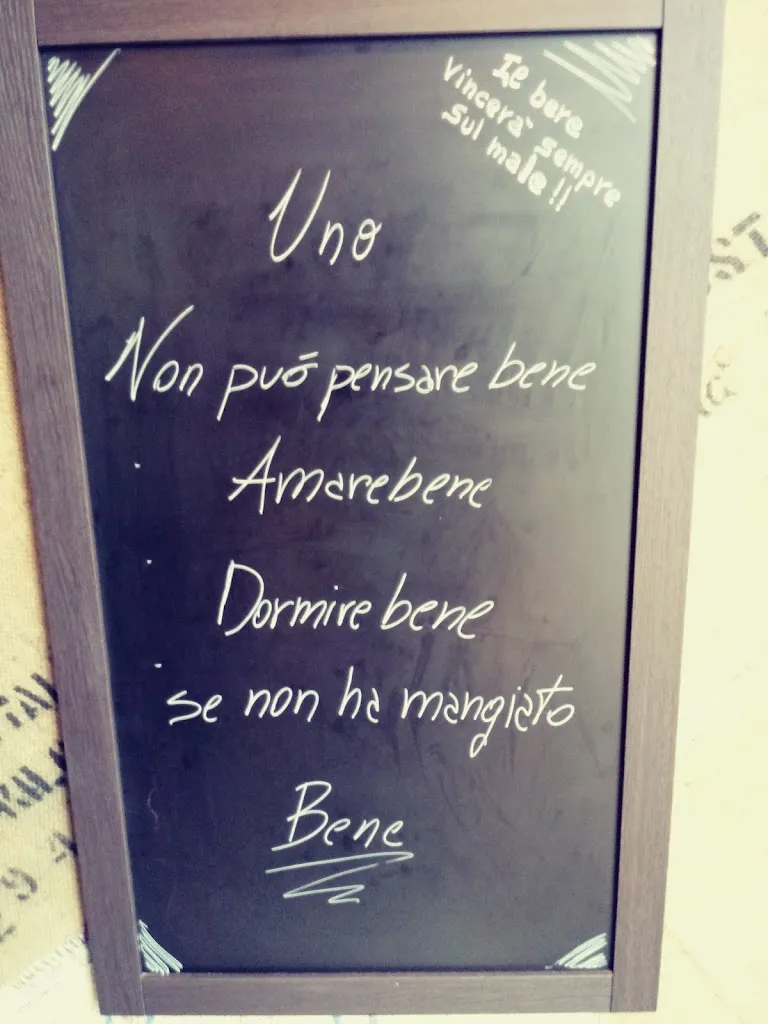 Il bere
Vincerà sempre
Sul male!!
Uno
Non puó pensare bene
Amare bene
Dormire bene
se non ha mangiato
Bene